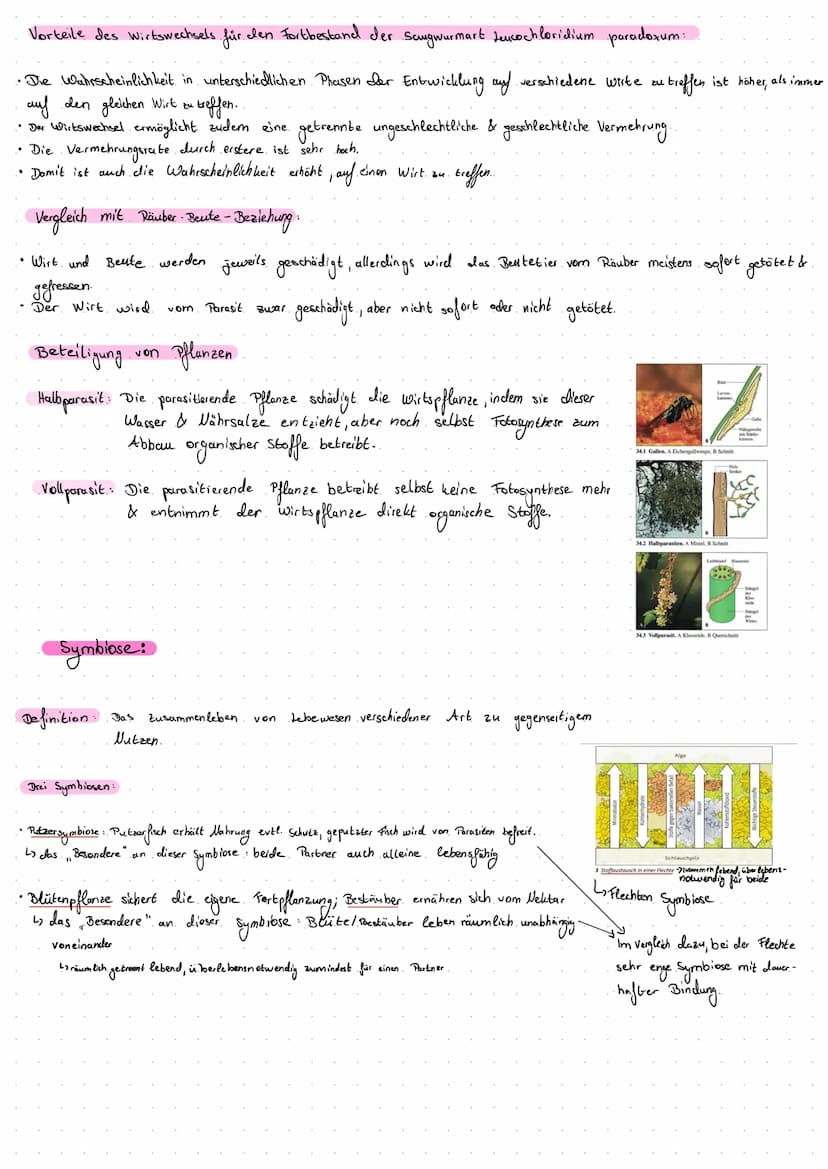 Vorteile des Wirtswechsels für den Fortbestand der Saugwurmart Leucochloridium paradoxum:
• Die Wahrscheinlichkeit in unterschiedlichen Phasen der Entwicklung auf verschiedene Wirte zu treffen ist höher, als immer
auf den gleichen Wirt zu treffen.
• Der Wirtswechsel ermöglicht zudem eine getrennte ungeschlechtliche & geschlechtliche Vermehrung
• Die Vermehrungsrate durch erstere ist sehr hoch.
• Damit ist auch die Wahrscheinlichkeit erhöht, auf einen Wirt zu treffen.
Vergleich mit Räuber-Beute-Beziehung:
• Wirt und Beute werden jeweils geschädigt, allerdings wird das Beutetier vom Räuber meistens sofort getötet &
gefressen.
• Der Wirt wird vom Parasit zwar geschädigt, aber nicht sofort oder nicht getötet.
Beteiligung von Pflanzen
Halbparasit: Die parasitierende Pflanze schädigt die Wirtspflanze, indem sie dieser
Wasser & Nährsalze entzieht, aber noch selbst Fotosynthese zum
Abbau organischer Stoffe betreibt.
34.1 Gallen. A Eichengallwespe, B Schnitt
Vollparasit: Die parasitierende Pflanze betreibt selbst keine Fotosynthese mehr
& entnimmt der Wirtspflanze direkt organische Stoffe.
34.2 Halbparasiten. A Mistel, B Schnitt
34.3 Vollparasit. A Kleeseide, B Querschnitt
Symbiose:
Definition: Das Zusammenleben von Lebewesen verschiedener Art zu gegenseitigem
Nutzen.
Drei Symbiosen:
Alge
Schlauchpilz
3 Stoffaustausch in einer Flechte → zusammen lebend, überlebens-
notwendig für beide
↳ Flechten Symbiose
• Putzersymbiose: Putzerfisch erhält Nahrung evtl. Schutz, geputzter Fisch wird von Parasiten befreit.
↳ das „Besondere" an dieser Symbiose: beide Partner auch alleine lebensfähig
• Blütenpflanze sichert die eigene Fortpflanzung; Bestäuber ernähren sich vom Nektar
↳ das „Besondere" an dieser Symbiose: Blüte/Bestäuber leben räumlich unabhängig
voneinander
↳ räumlich getrennt lebend, überlebensnotwendig zumindest für einen Partner
Im Vergleich dazu, bei der Flechte
sehr enge Symbiose mit dauer-
hafter Bindung.